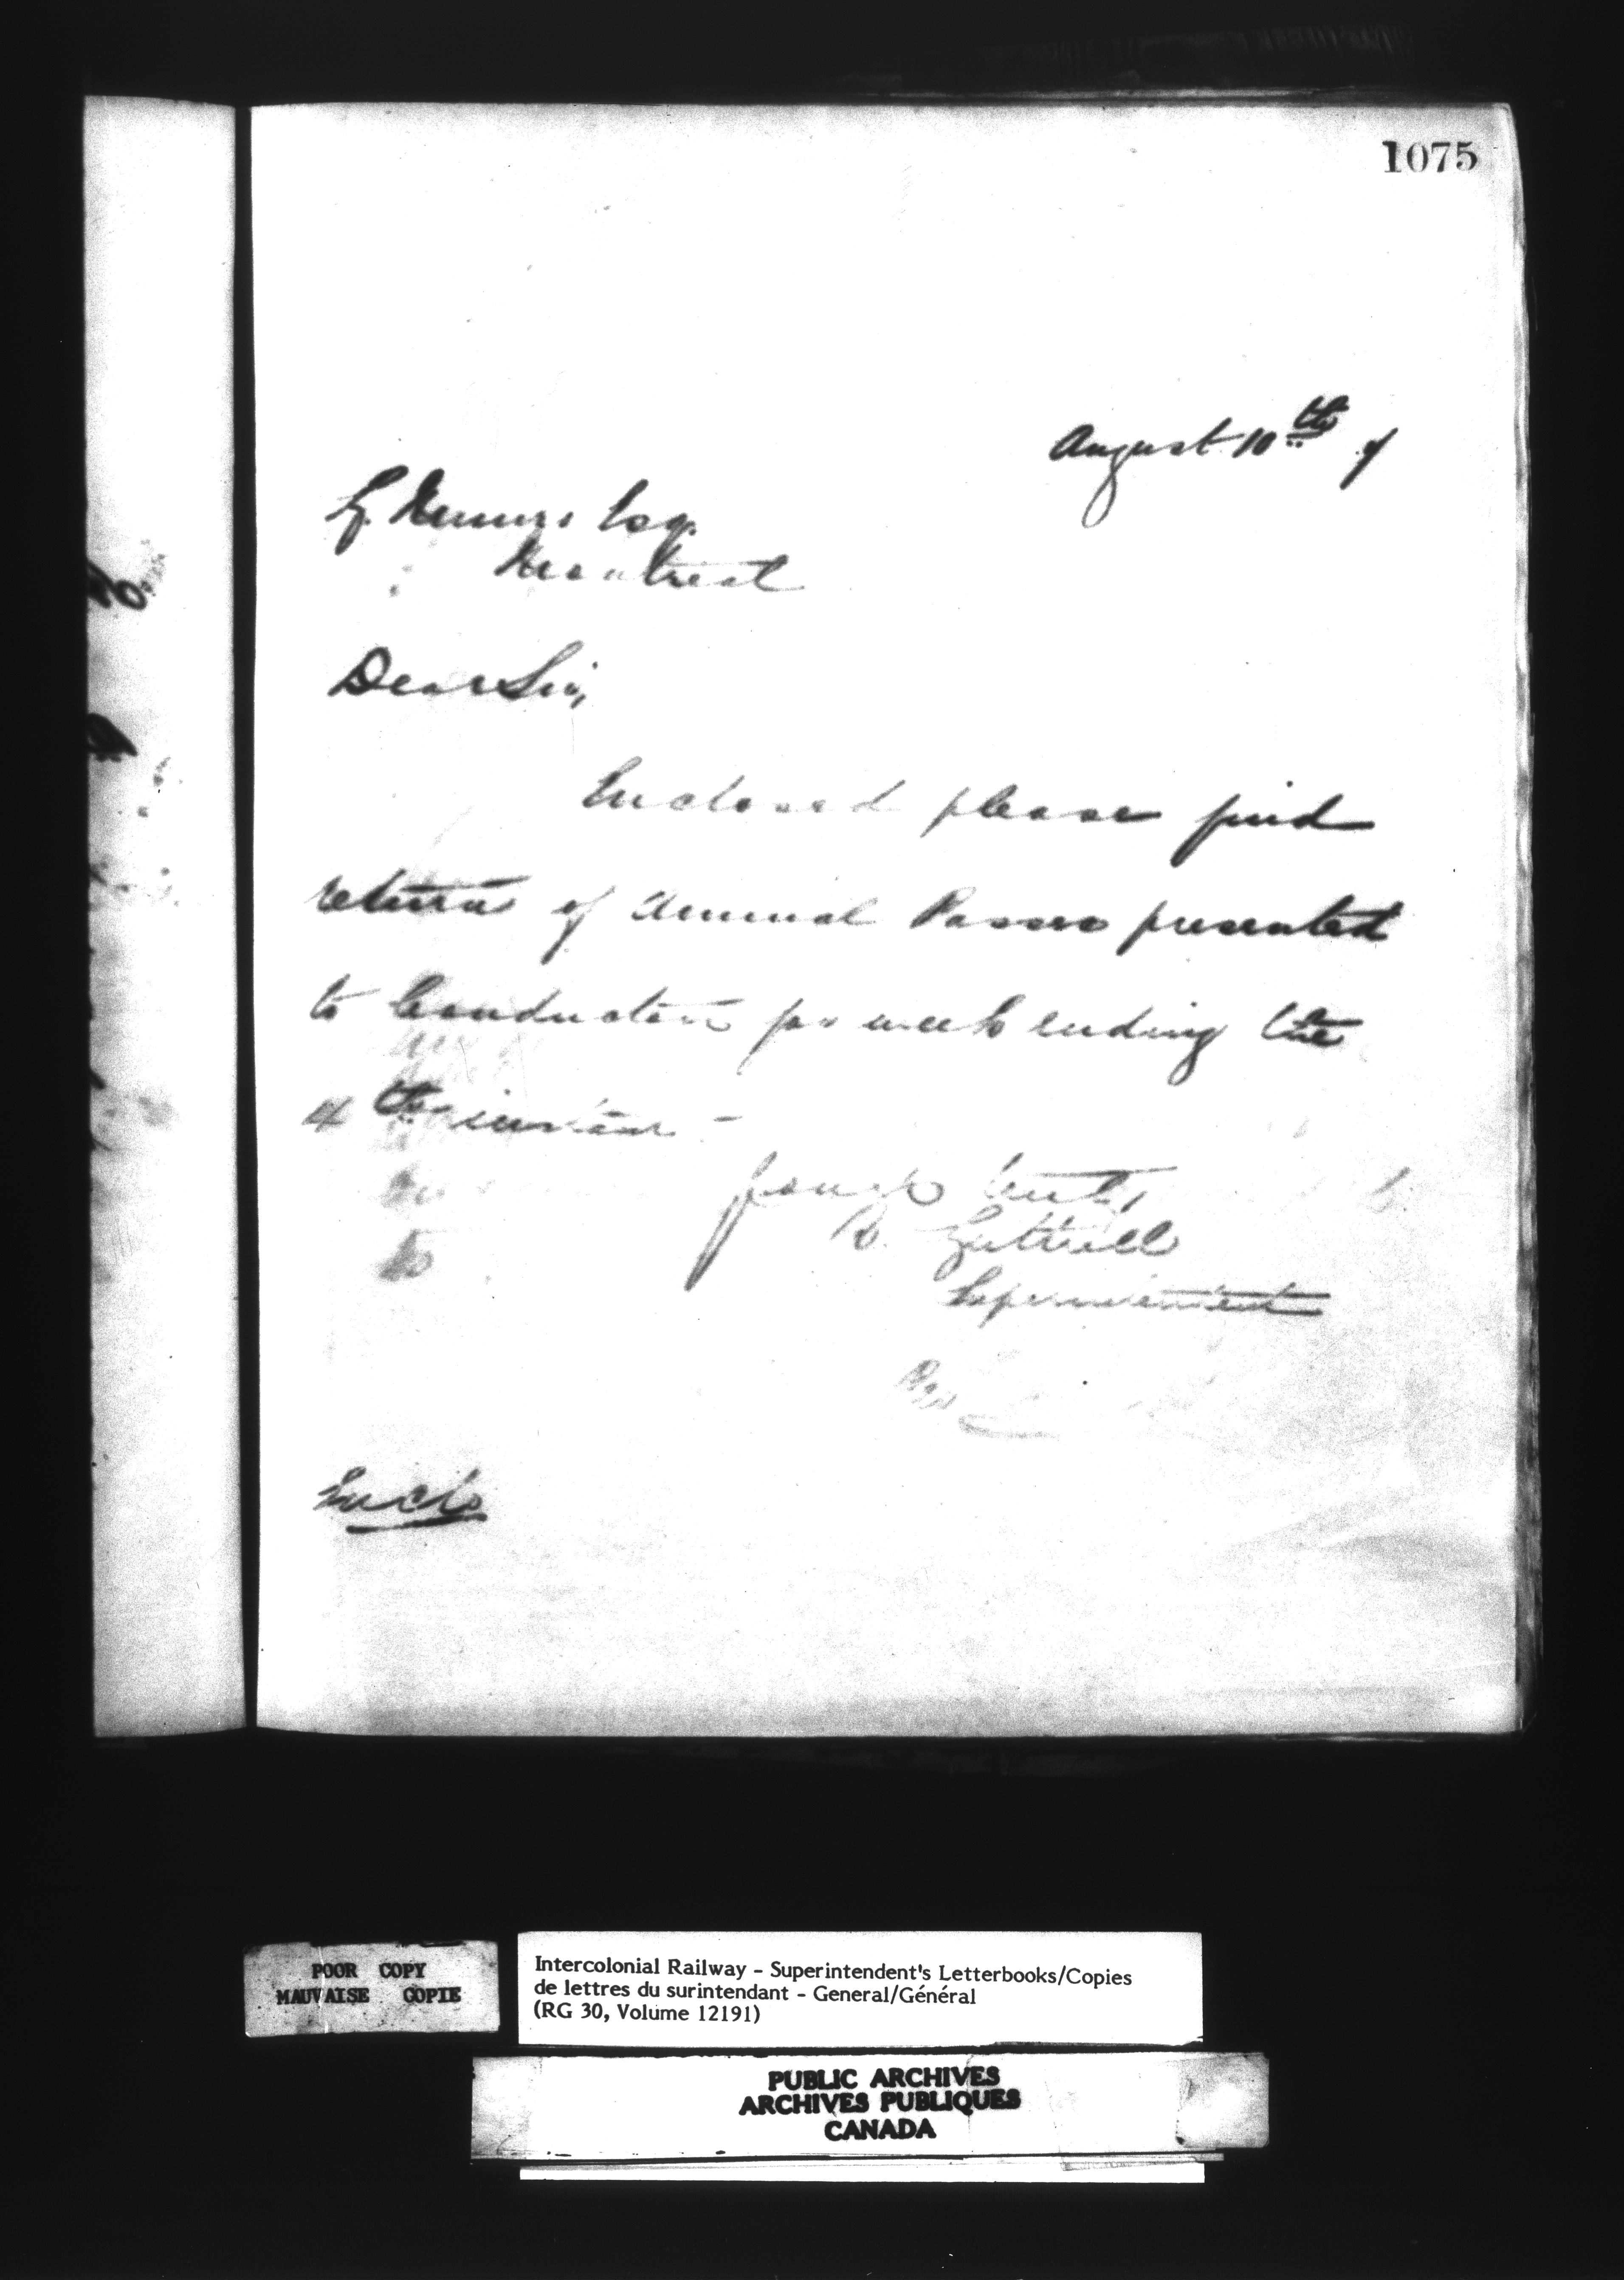 1075
August 10th
Esq.
Montreal
Dear Sir,
Enclosed please find
return of Annual Passes presented
to Conductors for week ending the
4th instant -
Yours truly
Luttrell
Superintendent
Per
Enclo
POOR COPY
MAUVAISE COPIE
Intercolonial Railway - Superintendent's Letterbooks/Copies
de lettres du surintendant - General/Général
(RG 30, Volume 12191)
PUBLIC ARCHIVES
ARCHIVES PUBLIQUES
CANADA